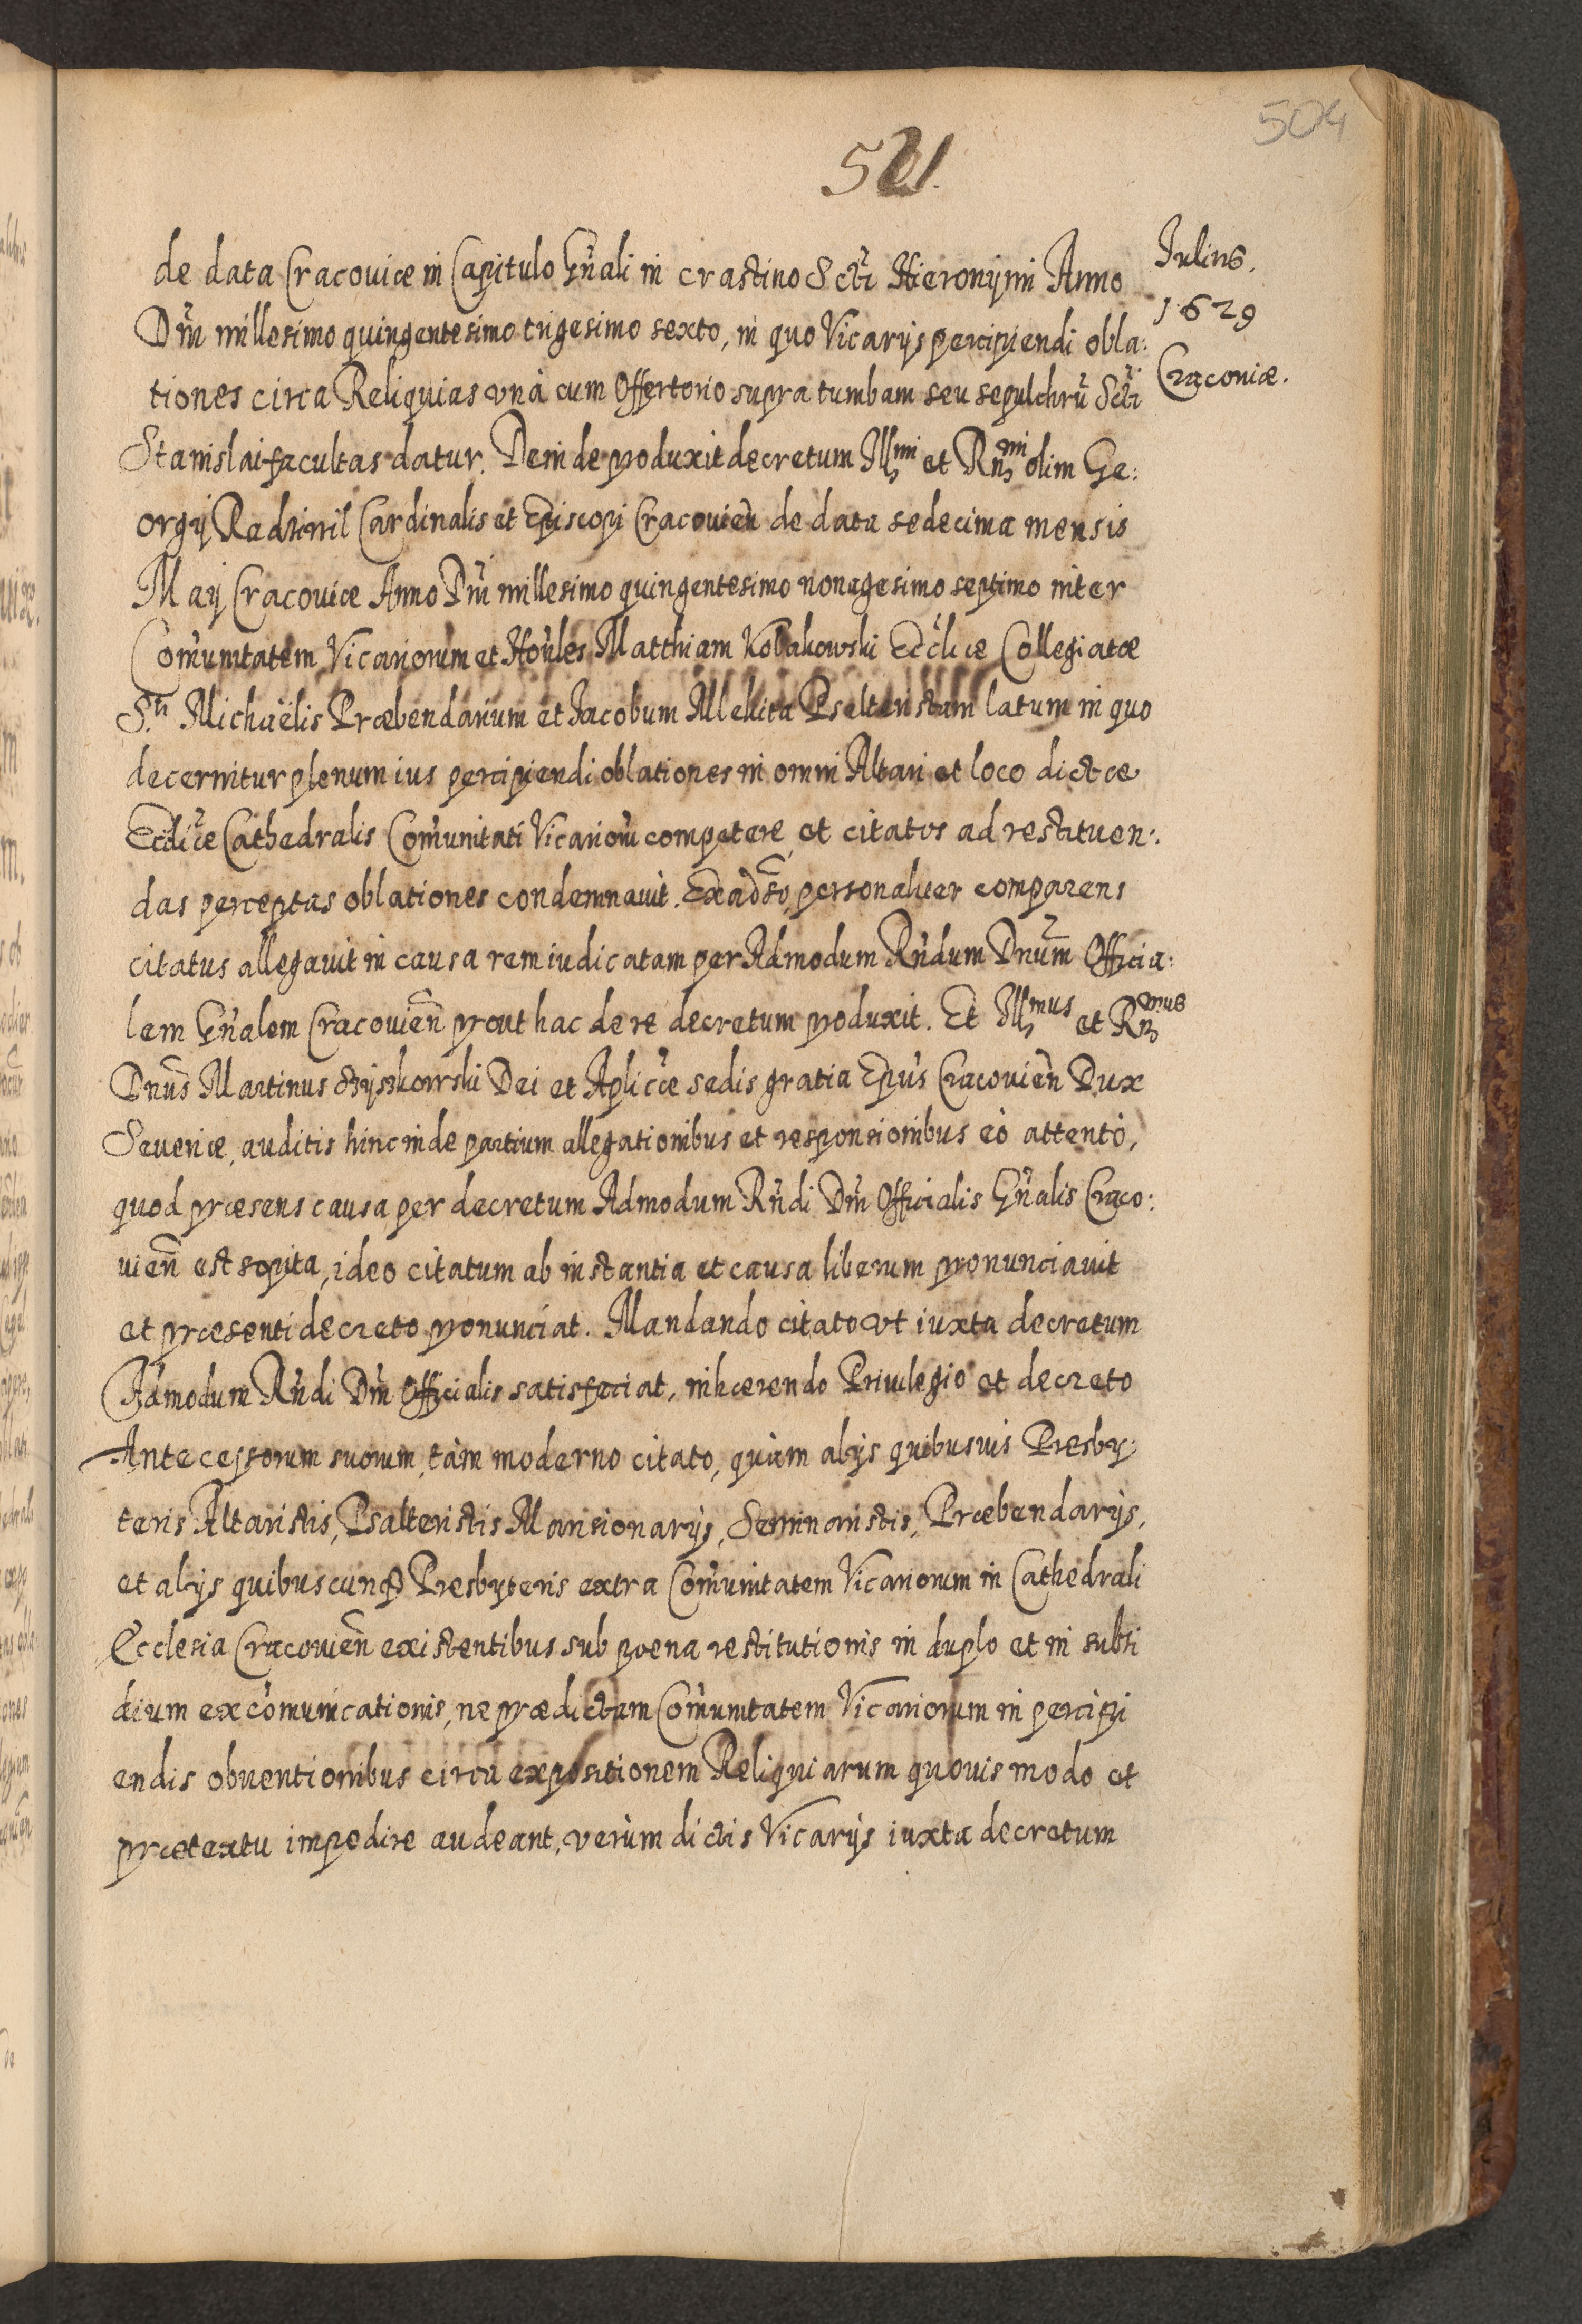 504
521.
Iulius.
1629
Cracouiæ.
de data Cracouiæ in Capitulo Gn̄ali in crastino Scti Hieronymi Anno
Dn̄i millesimo quingentesimo trigesimo sexto, in quo Vicarijs percipiendi obla:
tiones circa Reliquias vnà cum Offertorio supra tumbam seu sepulchrū Scti
Stanislai facultas datur. Deinde produxit decretum Illmi et Rn̄mi olim Ge:
orgij Radziwil Cardinalis et Episcopi Cracouien̄ de data sedecima mensis
Maij Cracouiæ Anno Dn̄i millesimo quingentesimo nonagesimo septimo inter
Com̄unitatem Vicariorum et Hon̄les Matthiam Kobakowski Eccl̄iæ Collegiatæ
S.ti Michaëlis Præbendarium et Jacobum Mlekita Psalteristam latum in quo
decernitur plenum ius percipiendi oblationes in omni Altari et loco dictæ
Eccl̄iæ Cathedralis Com̄unitati Vicariorū competere, et citatos ad restituen:
das perceptas oblationes condemnauit. Ex aduso, personaliter comparens
citatus allegauit in causa rem iudicatam per Admodum Rn̄dum Dn̄um Officia:
lem Gn̄alem Cracouien̄ prout hac de re decretum produxit. Et Illmus et Rn̄mus
Dn̄us Martinus Szyszkowski Dei et Aplicæ sedis gratia Epūs Cracouien̄ Dux
Seueriæ, auditis hinc inde partium allegationibus et responsionibus eò attentò,
quod præsens causa per decretum Admodum Rn̄di Dn̄i Officialis Gn̄alis Craco:
uien̄ est sopita, ideo citatum ab instantia et causa liberum pronunciauit
et præsenti decreto pronunciat. Mandando citato vt iuxta decretum
Admodum Rn̄di Dn̄i Officialis satisfaciat, inhærendo Priuilegio et decreto
Antecessorum suorum, tàm moderno citato, quàm alijs quibusuis Presby:
teris Altaristis, Psalteristis Mansionarijs, Seminaristis, Præbendarijs,
et alijs quibuscunq Presbyteris extra Com̄unitatem Vicariorum in Cathedrali
Ecclesia Cracouien̄ existentibus sub poena restitutionis in duplo et in subsi
dium excom̄unicationis, ne prædictam Com̄unitatem Vicariorum in percipi
endis obuentionibus circa expositionem Reliquiarum quouis modo et
prætextu impedire audeant, verùm dictis Vicarijs iuxta decretum